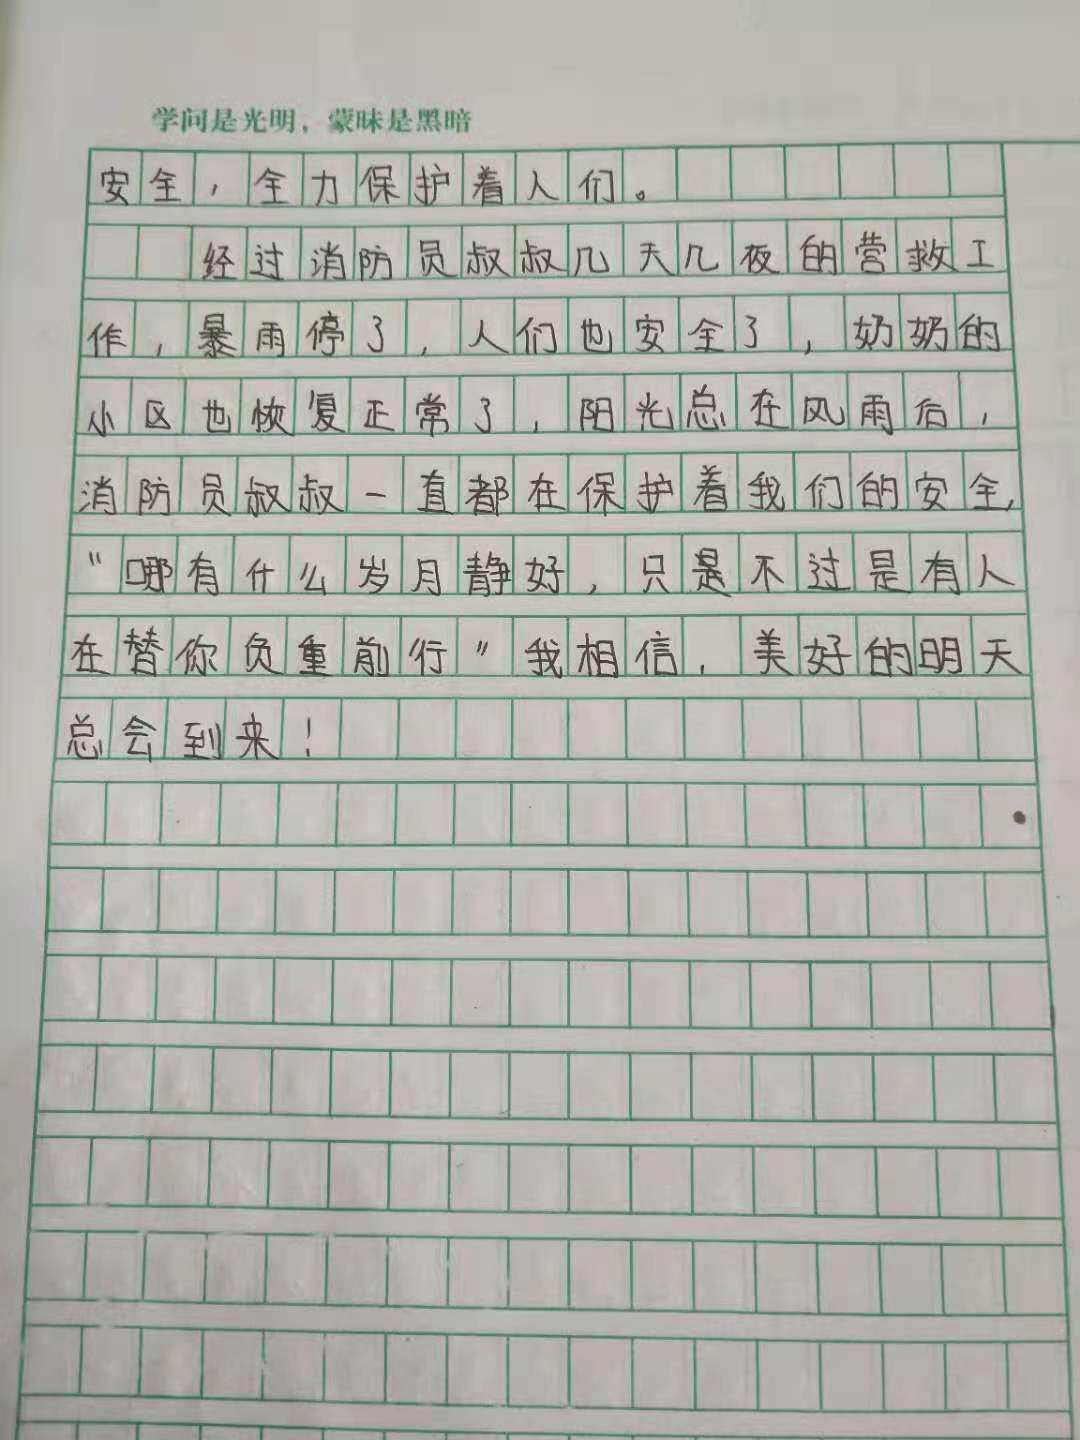 学问是光明，蒙昧是黑暗
安全，全力保护着人们。
经过消防员叔叔几天几夜的营救工
作，暴雨停了，人们也安全了，奶奶的
小区也恢复正常了，阳光总在风雨后，
消防员叔叔一直都在保护着我们的安全，
“哪有什么岁月静好，只是不过是有人
在替你负重前行”我相信，美好的明天
总会到来！